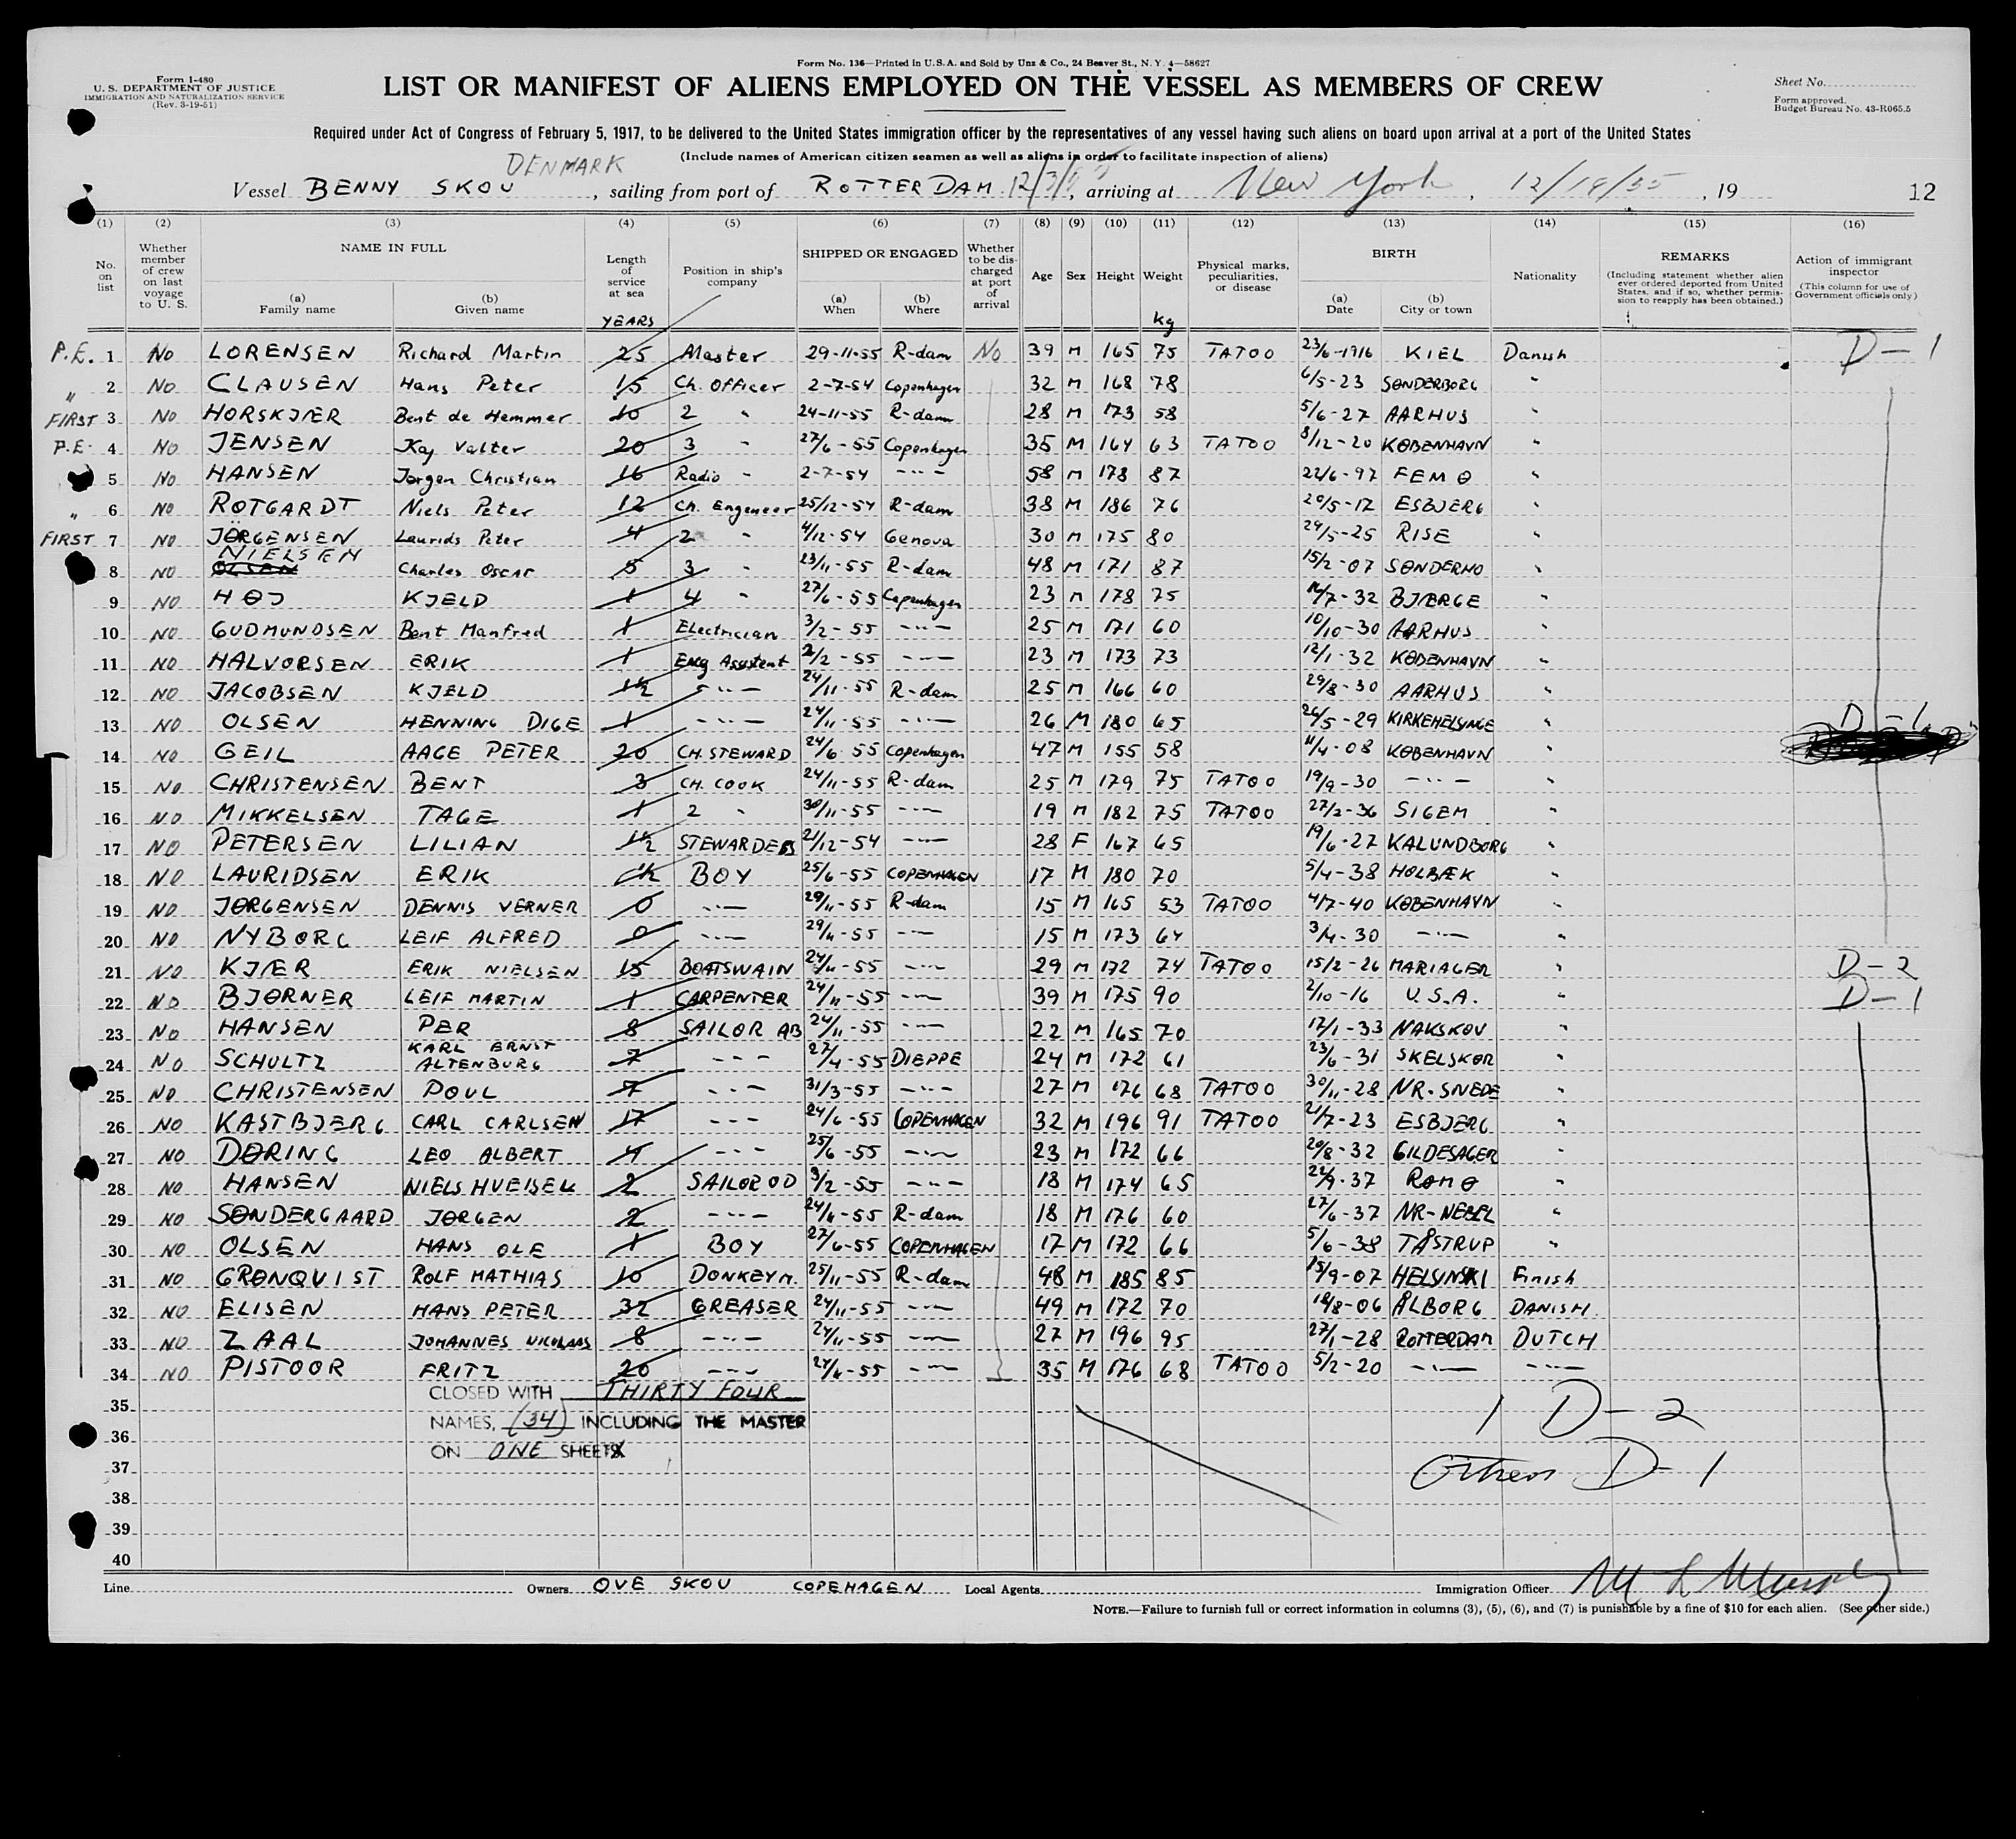 Form No. 136—Printed in U.S.A. and Sold by Unz & Co., 24 Beaver St., N. Y. 4—58627
Form I-480
U. S. DEPARTMENT OF JUSTICE
IMMIGRATION AND NATURALIZATION SERVICE
(Rev. 3-19-51)
LIST OR MANIFEST OF ALIENS EMPLOYED ON THE VESSEL AS MEMBERS OF CREW
Sheet No.
Form approved.
Budget Bureau No. 43-R065.5
Required under Act of Congress of February 5, 1917, to be delivered to the United States immigration officer by the representatives of any vessel having such aliens on board upon arrival at a port of the United States
(Include names of American citizen seamen as well as aliens in order to facilitate inspection of aliens)
DENMARK
Vessel BENNY SKOU, sailing from port of ROTTERDAM, arriving at New York, 19 12
(1) (2) (3) (4) (5) (6) (7) (8) (9) (10) (11) (12) (13) (14) (15) (16)
No. on list Whether member of crew on last voyage to U. S. NAME IN FULL (a) Family name (b) Given name Length of service at sea YEARS Position in ship's company SHIPPED OR ENGAGED (a) When (b) Where Whether to be discharged at port of arrival Age Sex Height Weight kg Physical marks, peculiarities, or disease BIRTH (a) Date (b) City or town Nationality REMARKS (Including statement whether alien ever ordered deported from United States, and if so, whether permission to reapply has been obtained.) Action of immigrant inspector (This column for use of Government officials only)
P.E. 1 No LORENSEN Richard Martin 25 Master 29-11-55 R-dam No 39 M 165 75 TATOO 23/6-1916 KIEL Danish D-1
" 2 NO CLAUSEN Hans Peter 15 Ch. Officer 2-7-54 Copenhagen 32 M 168 78 6/5-23 SØNDERBORG "
FIRST 3 NO HORSKJÆR Bent de Hemmer 10 2 " 24-11-55 R-dam 28 M 173 58 5/6-27 AARHUS "
P.E. 4 NO JENSEN Kaj Valter 20 3 " 27/6-55 Copenhagen 35 M 164 63 TATOO 8/12-20 KØBENHAVN "
5 No HANSEN Jørgen Christian 16 Radio " 2-7-54 -"- 58 M 178 87 22/6-97 FEMØ "
" 6 NO ROTGARDT Niels Peter 12 Ch. Engeneer 25/12-54 R-dam 38 M 186 76 20/5-17 ESBJERG "
FIRST 7 NO JØRGENSEN Laurids Peter 4 2 " 4/12-54 Genova 30 M 175 80 29/5-25 RISE "
8 NO OLSEN NIELSEN Charles Oscar 5 3 " 23/11-55 R-dam 48 M 171 87 15/2-07 SØNDERHO "
9 NO HØJ KJELD 1 4 " 27/6-55 Copenhagen 23 M 178 75 16/7-32 BJÆRGE "
10 NO GUDMUNDSEN Bent Manfred 1 Electrician 3/2-55 -"- 25 M 171 60 10/10-30 AARHUS "
11 NO HALVORSEN ERIK 1 Eng Assistent 2/2-55 -"- 23 M 173 73 12/1-32 KØBENHAVN "
12 NO JACOBSEN KJELD 1½ -"- 24/11-55 R-dam 25 M 166 60 29/8-30 AARHUS "
13 NO OLSEN HENNING DIGE 1 -"- 24/11-55 -"- 26 M 180 65 26/5-29 KIRKEHELSINGE " D-1
14 NO GEIL AAGE PETER 20 CH. STEWARD 24/6 55 Copenhagen 47 M 155 58 11/4-08 KØBENHAVN "
15 NO CHRISTENSEN BENT 3 CH. COOK 24/11-55 R-dam 25 M 179 75 TATOO 19/9-30 -"- "
16 NO MIKKELSEN TAGE 1 2 " 30/11-55 -"- 19 M 182 75 TATOO 27/2-36 SIGEM "
17 NO PETERSEN LILIAN 1½ STEWARDESS 21/12-54 -"- 28 F 167 65 19/6-27 KALUNDBORG "
18 NO LAURIDSEN ERIK ½ BOY 25/6-55 COPENHAGEN 17 M 180 70 5/4-38 HOLBÆK "
19 NO JØRGENSEN DENNIS VERNER 0 -"- 29/11-55 R-dam 15 M 165 53 TATOO 4/7-40 KØBENHAVN "
20 NO NYBORG LEIF ALFRED 0 -"- 29/11-55 -"- 15 M 173 64 3/4-30 -"- "
21 NO KJÆR ERIK NIELSEN 15 BOATSWAIN 24/11-55 -"- 29 M 172 74 TATOO 15/2-26 MARIAGER " D-2
22 NO BJØRNER LEIF MARTIN 1 CARPENTER 24/11-55 -"- 39 M 175 90 2/10-16 U.S.A. " D-1
23 NO HANSEN PER 8 SAILOR AB 24/11-55 -"- 22 M 165 70 17/1-33 NAKSKOV "
24 NO SCHULTZ KARL ERNST ALTENBURG 7 -"- 27/4-55 DIEPPE 24 M 172 61 23/6-31 SKELSKØR "
25 NO CHRISTENSEN POUL 7 -"- 31/3-55 -"- 27 M 176 68 TATOO 30/11-28 NR. SNEDE "
26 NO KASTBJERG CARL CARLSEN 17 -"- 24/6-55 COPENHAGEN 32 M 196 91 TATOO 21/7-23 ESBJERG "
27 NO DØRING LEO ALBERT 4 -"- 25/6-55 -"- 23 M 172 66 20/8-32 GILDESAGER "
28 NO HANSEN NIELS 2 SAILOR OD 3/2-55 -"- 18 M 174 65 22/9-37 RØMØ "
29 NO SØNDERGAARD JØRGEN 2 -"- 24/11-55 R-dam 18 M 176 60 27/6-37 NR-NEBEL "
30 NO OLSEN HANS OLE 1 BOY 27/6-55 COPENHAGEN 17 M 172 66 5/6-38 TÅSTRUP "
31 NO GRØNQVIST ROLF MATHIAS 10 DONKEYM. 25/11-55 R-dam 48 M 185 85 15/9-07 HELSINSKI Finish
32 NO ELISEN HANS PETER 32 GREASER 24/11-55 -"- 49 M 172 70 18/8-06 ÅLBORG DANISH.
33 NO ZAAL JOHANNES NICOLAAS 8 -"- 24/11-55 -"- 27 M 196 95 27/1-28 ROTTERDAM DUTCH
34 NO PISTOOR FRITZ 20 -"- 24/11-55 -"- 35 M 176 68 TATOO 5/2-20 -"- -"-
35 CLOSED WITH THIRTY FOUR
NAMES, (34) INCLUDING THE MASTER
36 ON ONE SHEETS
1 D-2
37 Others D-1
38
39
40
Line Owners OVE SKOU COPEHAGEN Local Agents Immigration Officer M L Murphy
NOTE.—Failure to furnish full or correct information in columns (3), (5), (6), and (7) is punishable by a fine of $10 for each alien. (See other side.)